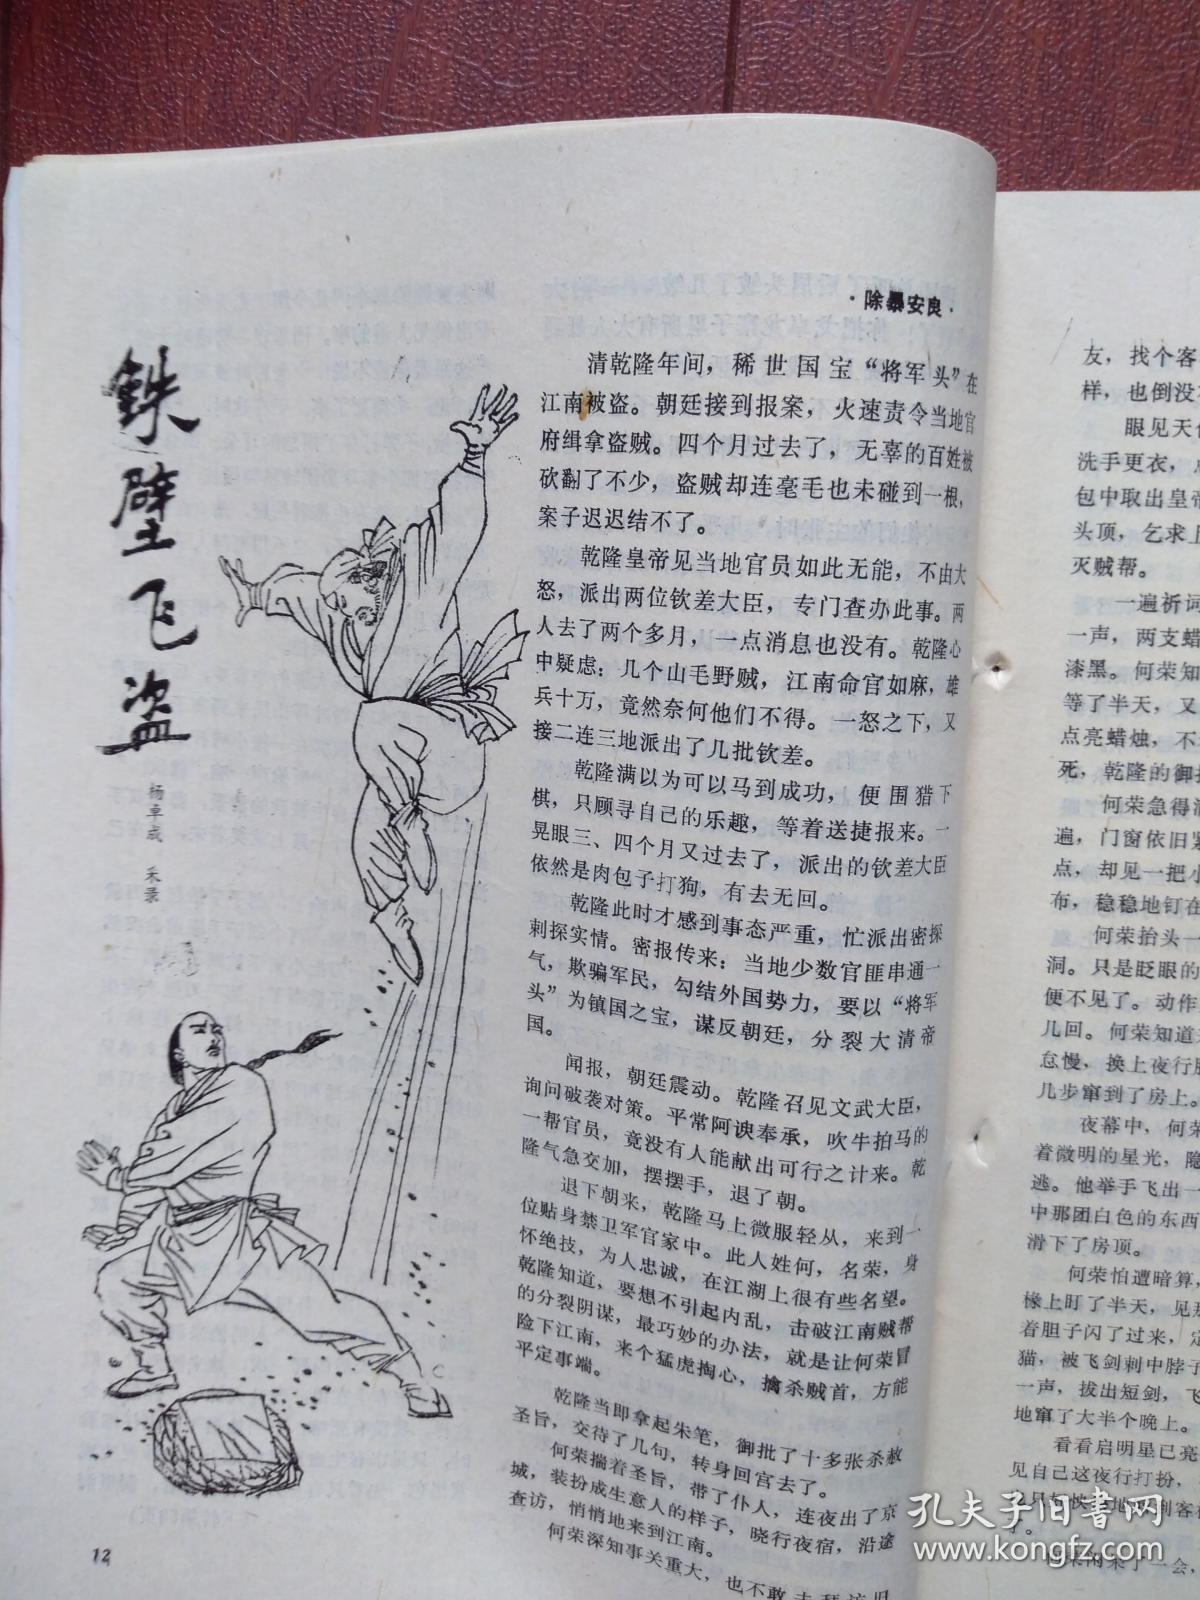 ·除暴安良·
铁壁飞盗
杨卓成 采录
清乾隆年间，稀世国宝“将军头”在
江南被盗。朝廷接到报案，火速责令当地官
府缉拿盗贼。四个月过去了，无辜的百姓被
砍翻了不少，盗贼却连毫毛也未碰到一根，
案子迟迟结不了。
乾隆皇帝见当地官员如此无能，不由大
怒，派出两位钦差大臣，专门查办此事。两
人去了两个多月，一点消息也没有。乾隆心
中疑虑：几个山毛野贼，江南命官如麻，雄
兵十万，竟然奈何他们不得。一怒之下，又
接二连三地派出了几批钦差。
乾隆满以为可以马到成功，便围猎下
棋，只顾寻自己的乐趣，等着送捷报来。一
晃眼三、四个月又过去了，派出的钦差大臣
依然是肉包子打狗，有去无回。
乾隆此时才感到事态严重，忙派出密探
刺探实情。密报传来：当地少数官匪串通一
气，欺骗军民，勾结外国势力，要以“将军
头”为镇国之宝，谋反朝廷，分裂大清帝
国。
闻报，朝廷震动。乾隆召见文武大臣，
询问破袭对策。平常阿谀奉承，吹牛拍马的
一帮官员，竟没有人能献出可行之计来。乾
隆气急交加，摆摆手，退了朝。
退下朝来，乾隆马上微服轻从，来到一
位贴身禁卫军官家中。此人姓何，名荣，身
怀绝技，为人忠诚，在江湖上很有些名望。
乾隆知道，要想不引起内乱，击破江南贼帮
的分裂阴谋，最巧妙的办法，就是让何荣冒
险下江南，来个猛虎掏心，擒杀贼首，方能
平定事端。
乾隆当即拿起朱笔，御批了十多张杀赦
圣旨，交待了几句，转身回宫去了。
何荣揣着圣旨，带了仆人，连夜出了京
城，装扮成生意人的样子，晓行夜宿，沿途
查访，悄悄地来到江南。
何荣深知事关重大，也不敢去拜访旧
12
友，找个客
样，也倒没
眼见天
洗手更衣，
包中取出皇帝
头顶，乞求上
灭贼帮。
一遍祈词
一声，两支蜡
漆黑。何荣知
等了半天，又
点亮蜡烛，不
死，乾隆的御
何荣急得
遍，门窗依旧紧
点，却见一把小
布，稳稳地钉在
何荣抬头一
洞。只是眨眼的
便不见了。动作
几回。何荣知道
怠慢，换上夜行
几步窜到了房上。
夜幕中，何荣
着微明的星光，隐
逃。他举手飞出一
中那团白色的东西
滑下了房顶。
何荣怕遭暗算，
椽上盯了半天，见那
着胆子闪了过来，定
猫，被飞剑刺中脖子
一声，拔出短剑，飞
地窜了大半个晚上。
看看启明星已亮
见自己这夜行打扮，
孔夫子旧书网
www.kongfz.com